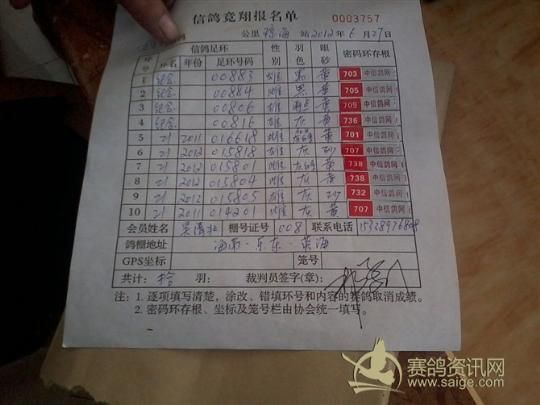 信鸽竞翔报名单 0003757
公里 站2012年6月29日
信鸽足环 性别 羽色 眼砂 密码环存根
环名 年份 足环号码
1 纪念 00883 雄 黑 黄 703 中信鸽网
2 纪念 00884 雄 黑 黄 705 中信鸽网
3 纪念 00806 雄 雨点 黄 709 中信鸽网
4 纪念 00816 雄 灰 黄 736 中信鸽网
5 21 2011 016618 雄 黄 701 中信鸽网
6 21 2012 015818 雄 灰 砂 707 中信鸽网
7 21 2012 015801 雌 黄 738 中信鸽网
8 21 2012 015804 雌 灰 黄 738 中信鸽网
9 21 2012 015805 雄 灰 砂 732 中信鸽网
10 21 2011 014201 雄 灰 黄 707 中信鸽网
会员姓名 棚号证号 008 联系电话
鸽棚地址 海南·乐东·莺海
GPS坐标 笼号
共计: 拾 羽: 裁判员签字(章):
注: 1. 逐项填写清楚，涂改、错填环号和内容的赛鸽取消成绩。
2. 密码环存根、坐标及笼号栏由协会统一填写。
赛鸽资讯网
www.saige.com